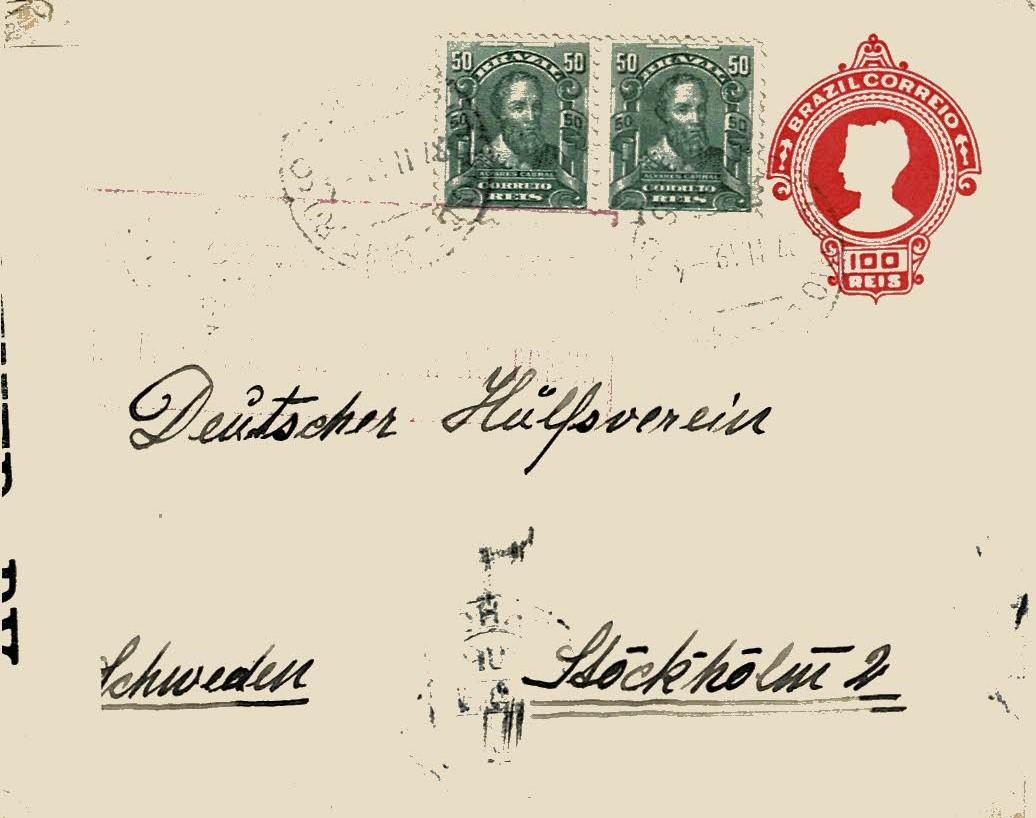 50 BRAZIL 50
50 50
ALVARES CABRAL
CORREIO
REIS
50 BRAZIL 50
50 50
ALVARES CABRAL
CORREIO
REIS
BRAZIL CORREIO
100
REIS
Deutscher Hülfsverein
Schweden
Stockholm 2